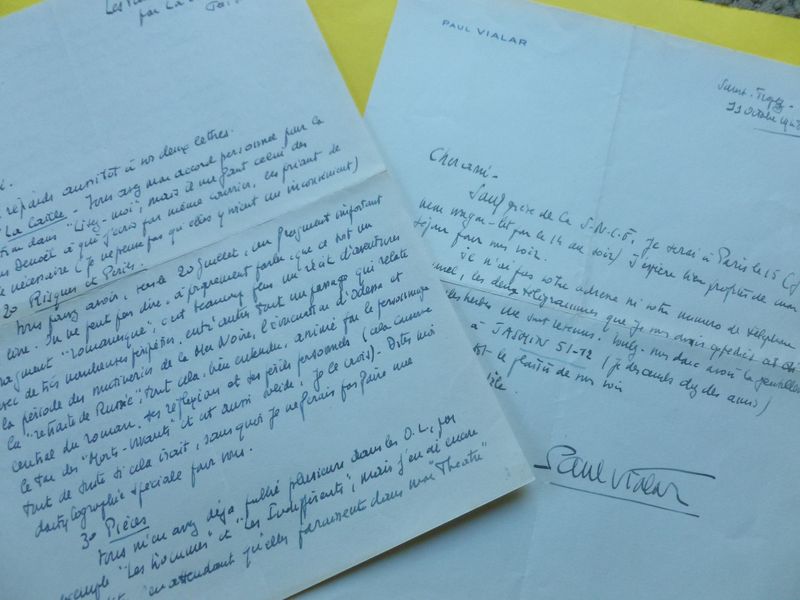 Les
par La
répands aussitôt à vos deux lettres.
La Caille - Vous avez mon accord personnel pour la
dans "Lisez-moi", mais il me faut celui des
Denoël à qui j'écris par même courrier, les priant de
nécessaire (je ne pense pas qu'elles y voient un inconvénient)
2º Risques et Périls.
Vous pouvez avoir, vers le 20 juillet, un fragment important
livre. On ne peut pas dire, à proprement parler, que ce soit un
fragment "romanesque", c'est beaucoup plus un récit d'aventures
avec de très nombreuses péripéties, entr'autres tout un passage qui relate
la période des mutineries de la Mer Noire, l'évacuation d'Odessa et
la "retraite de Russie" tout cela, bien entendu, animé par le personnage
central du roman, ses réflexions et ses périls personnels (cela
des "Morts-vivants" et est aussi solide, je le crois). Dites moi
tout de suite si cela irait, sans quoi je ne ferais pas faire une
dactylographie spéciale pour vous.
3º Pièces
Vous m'en avez déjà publié plusieurs dans les O.L., par
exemple "Les Hommes" et "Les Indifférents", mais j'en ai encore
en attendant qu'elles paraissent dans mon "Théâtre"
PAUL VIALAR
Saint-Tropez -
11 Octobre
Cher ami -
Sauf grève de la S.N.C.F., je serai à Paris le 15
wagon-lit par le 14 au soir) J'espère bien profiter de mon
séjour pour vous voir.
Je n'ai pas votre adresse ni votre numéro de téléphone
les deux télégrammes que je vous avais expédiés
me sont revenus. Voulez-vous donc avoir la gentillesse
à JASMIN 51-12 (je descends chez des amis)
le plaisir de vous voir
Paul Vialar